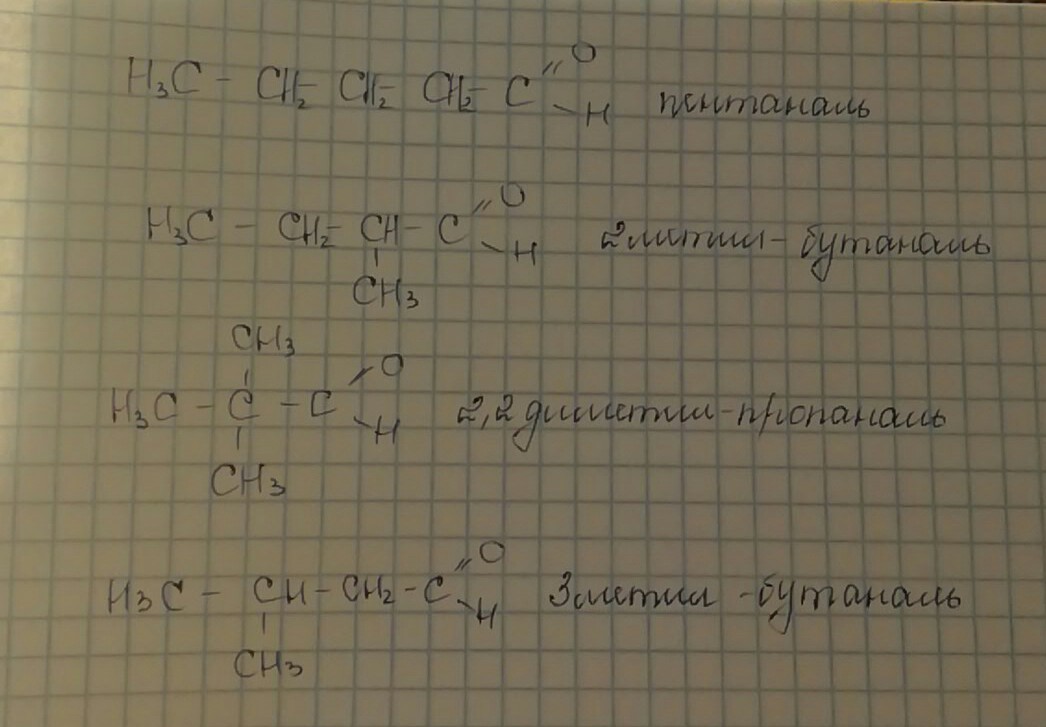 H₃C - CH₂- CH₂- CH₂- C =O -H пентаналь
H₃C - CH₂- CH - C =O -H 2метил-бутаналь
CH₃
CH₃
H₃C - C - C =O -H 2,2диметил-пропаналь
CH₃
H₃C - CH - CH₂ - C =O -H 3метил-бутаналь
CH₃